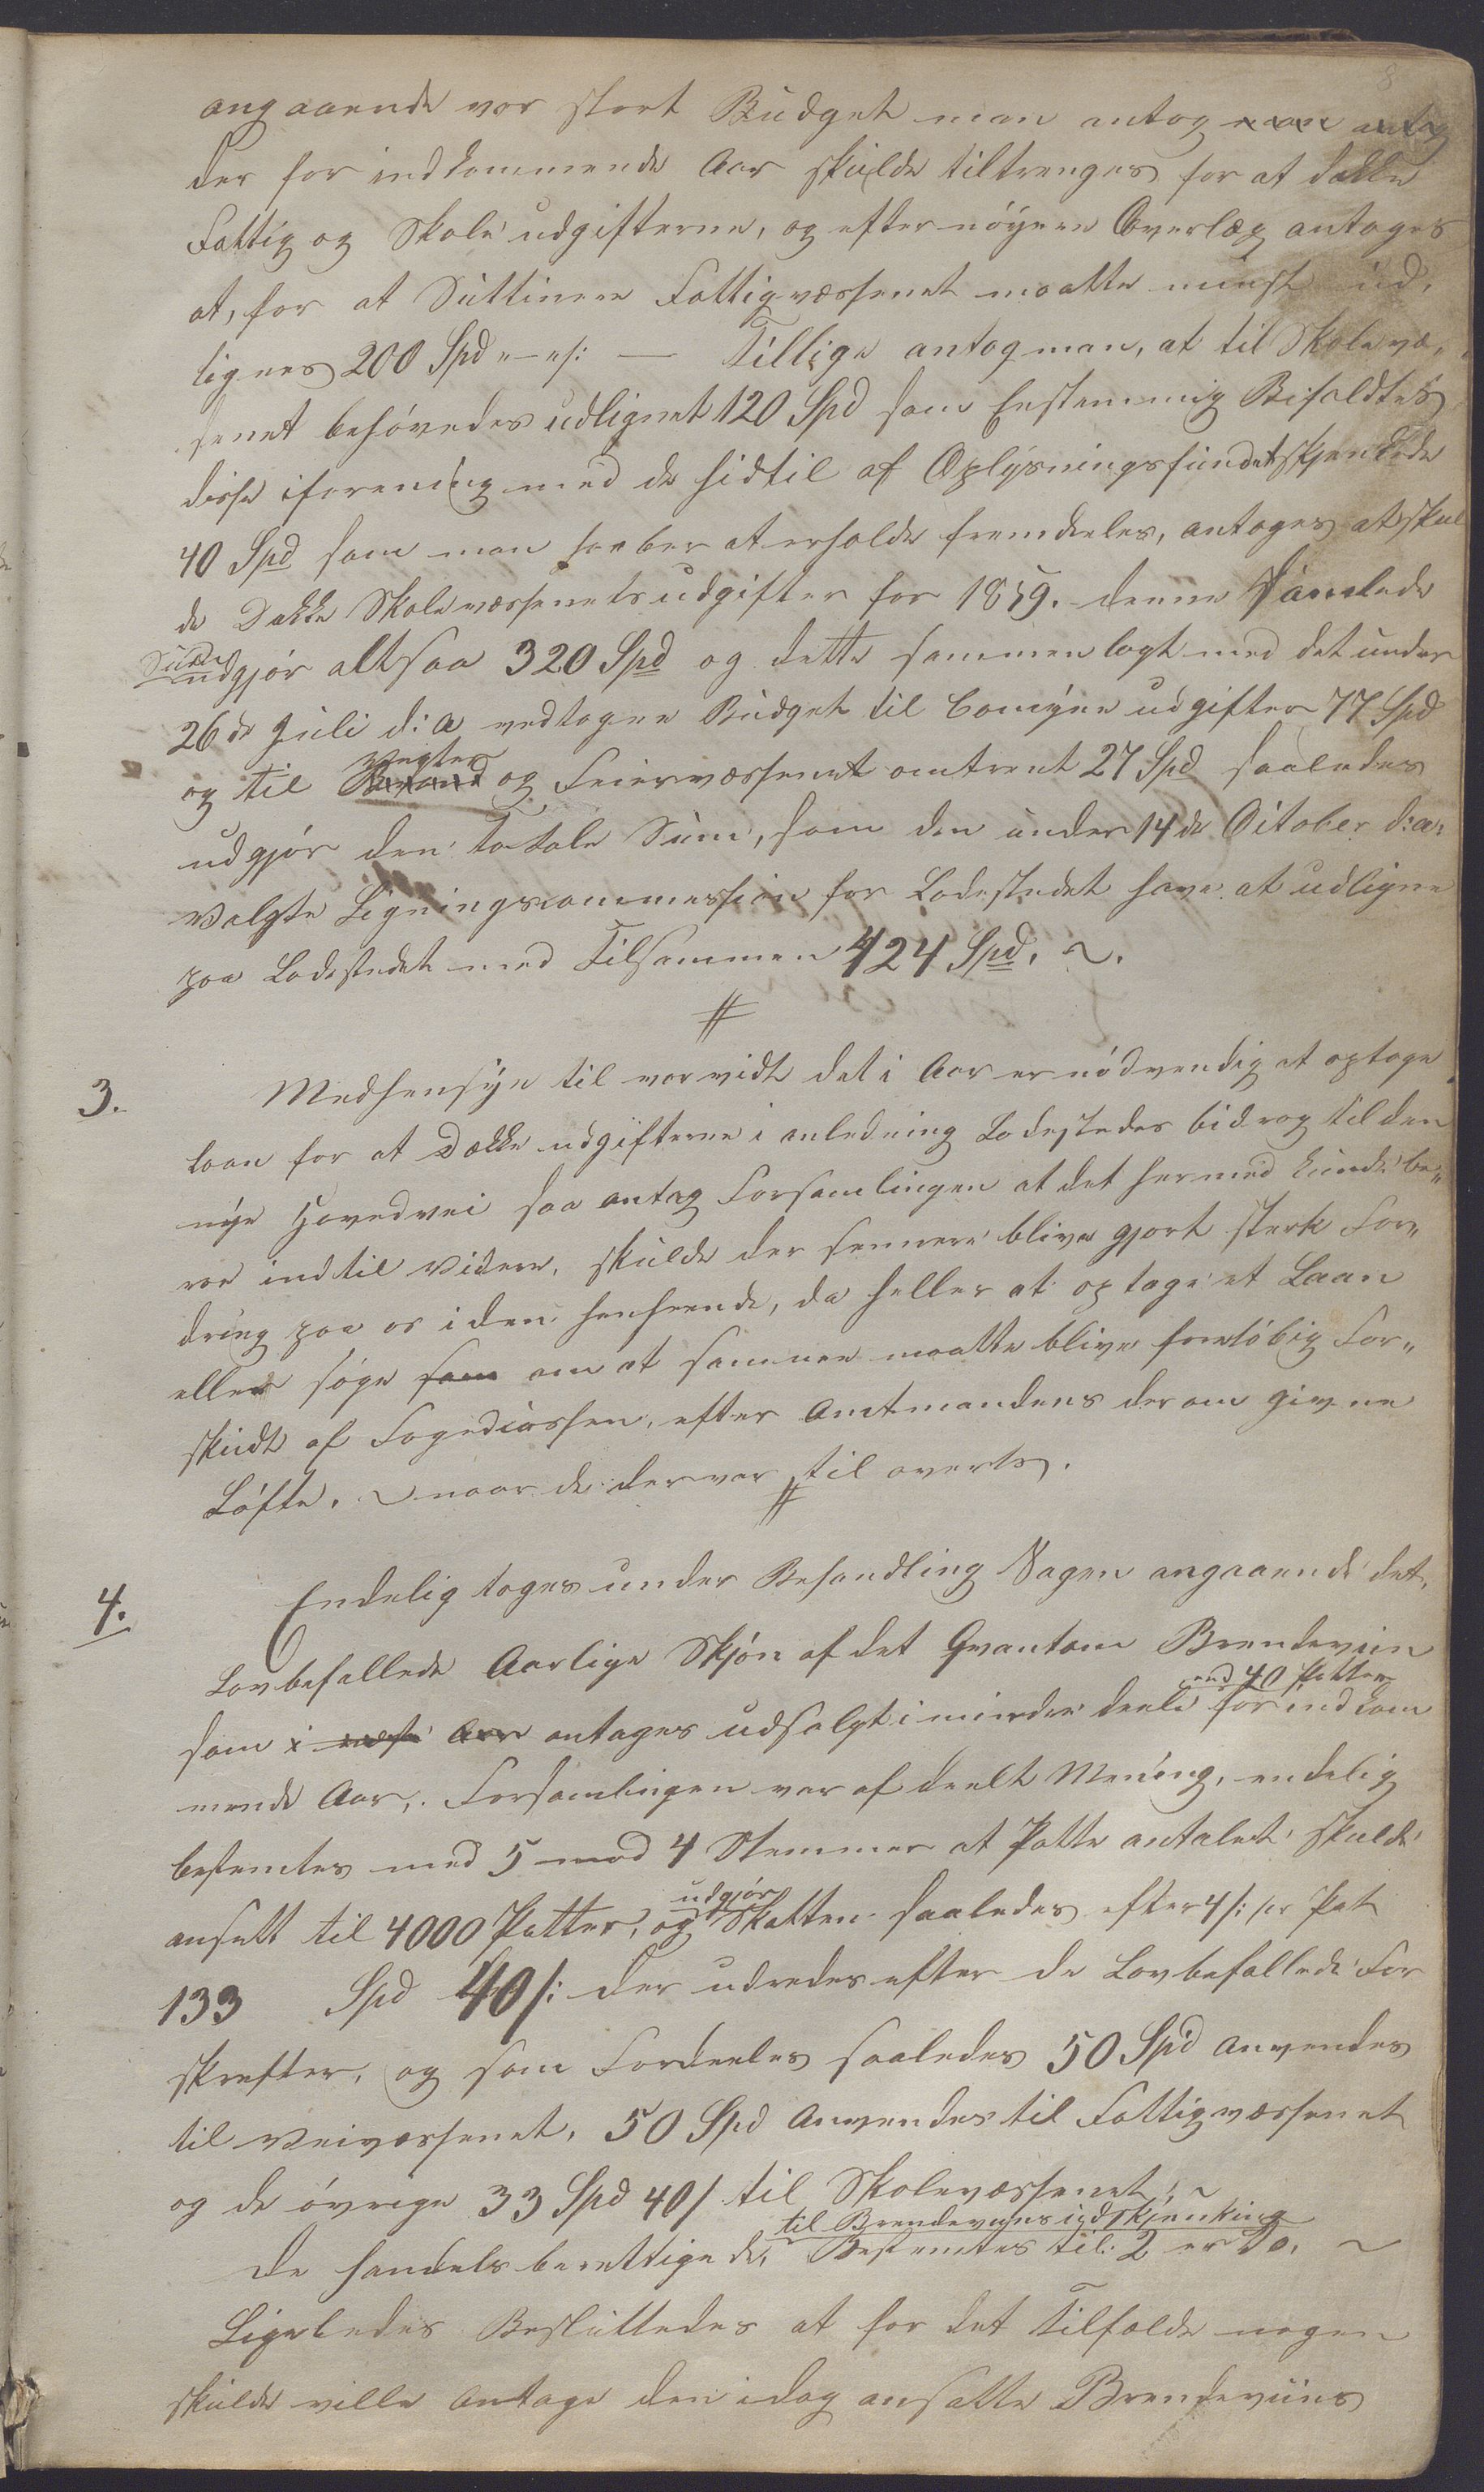 8
angaaende vor stort Budget man antog man antog
der for indkommende Aar skulde tiltrenges for at dække
Fattig og Skole udgifterne, og efter nöyere Overlæg antoges
at, for at Suttinere Fattigvæssenet maatte minst ud,
lignes 200 Spd "—"s: — Tillige antog man, at til Skolevæ,,
senet behövedes udlignet 120 Spd som Enstemmig Bifaldtes
disse iforening med de hidtil af Oplysningsfundet skjenkede
40 Spd som man haaber at erholde fremdeeles, antoges at skul
de Dekke Skolevæssenets udgifter for 1859. denne Samlede
Sum
udgjör altsaa 320 Spd og dette sammenlagt med det under
26de Juli d: a vedtagne Budget til Comyne udgifter 77 Spd
Vegter
og til Brand og Feiervæssenet omtrent 27 Spd saaledes
udgjör den totale Sum, som den under 14de October d: a:
Valgte Ligningscommession for Ladestedet have at udligne
paa Ladestedet med Tilsammen 424 Spd. ~.
3. Medhensyn til vorvidt det i Aar er nödvendig at optage
laan for at Dække udgifterne i anledning Ladestedes bidrag til den
nye Hovedvei saa antog Forsamlingen at det hermed kunde be,,
roe indtil Videre, skulde der sennere blive gjort sterk For,,
dring paa os i den henseende, da heller at optage et Laan
eller söge som om at samme maatte blive forelöbig For,,
skudt af Fogedcassen, efter Amtmandens derom givne
Löfte. ~ naar de der var til overs.
4. Endelig toges under Behandling Sagen angaaende det,
Lovbefallede Aarlige Skjön af det Qvantom Brendeviin
end 40 Potter
som i næste Aar antages udsolgt i mindre deele for indkom
mende Aar,. Forsamlingen var af deelt Mening, endelig
bestemtes med 5 mod 4 Stemmer at Potte antalet skulde
udgjör
ansett til 4000 Potter, og Skatten saaledes efter 4 s: pr Pot
133 Spd 40 s: der udredes efter de Lovbefallede For
skrefter, og som Fordeeles saaledes 50 Spd anvendes
til Veivæssenet, 50 Spd Anvendes til Fattigvæssenet
og de övrige 33 Spd 40 s til Skolevæssenet, ~
til Brendeviins udskjenking
De handelsberettigede, Bestemtes til: 2 er To. ~
Ligeledes Besluttedes at for det Tilfælde nogen
skulde ville Antage den idag ansatte Brendeviins